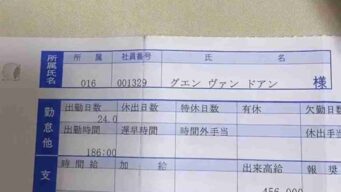 所属氏名
所 属 社員番号 氏 名
016 001329 グエン ヴァン ドアン 様
勤怠他
出勤日数 休出日数 特休日数 有休 欠勤日数
24.0
出勤時間 遅早時間 時間外手当 休出手当
186:00
支
時間給 加 給 出来高給 報 奨
456,000